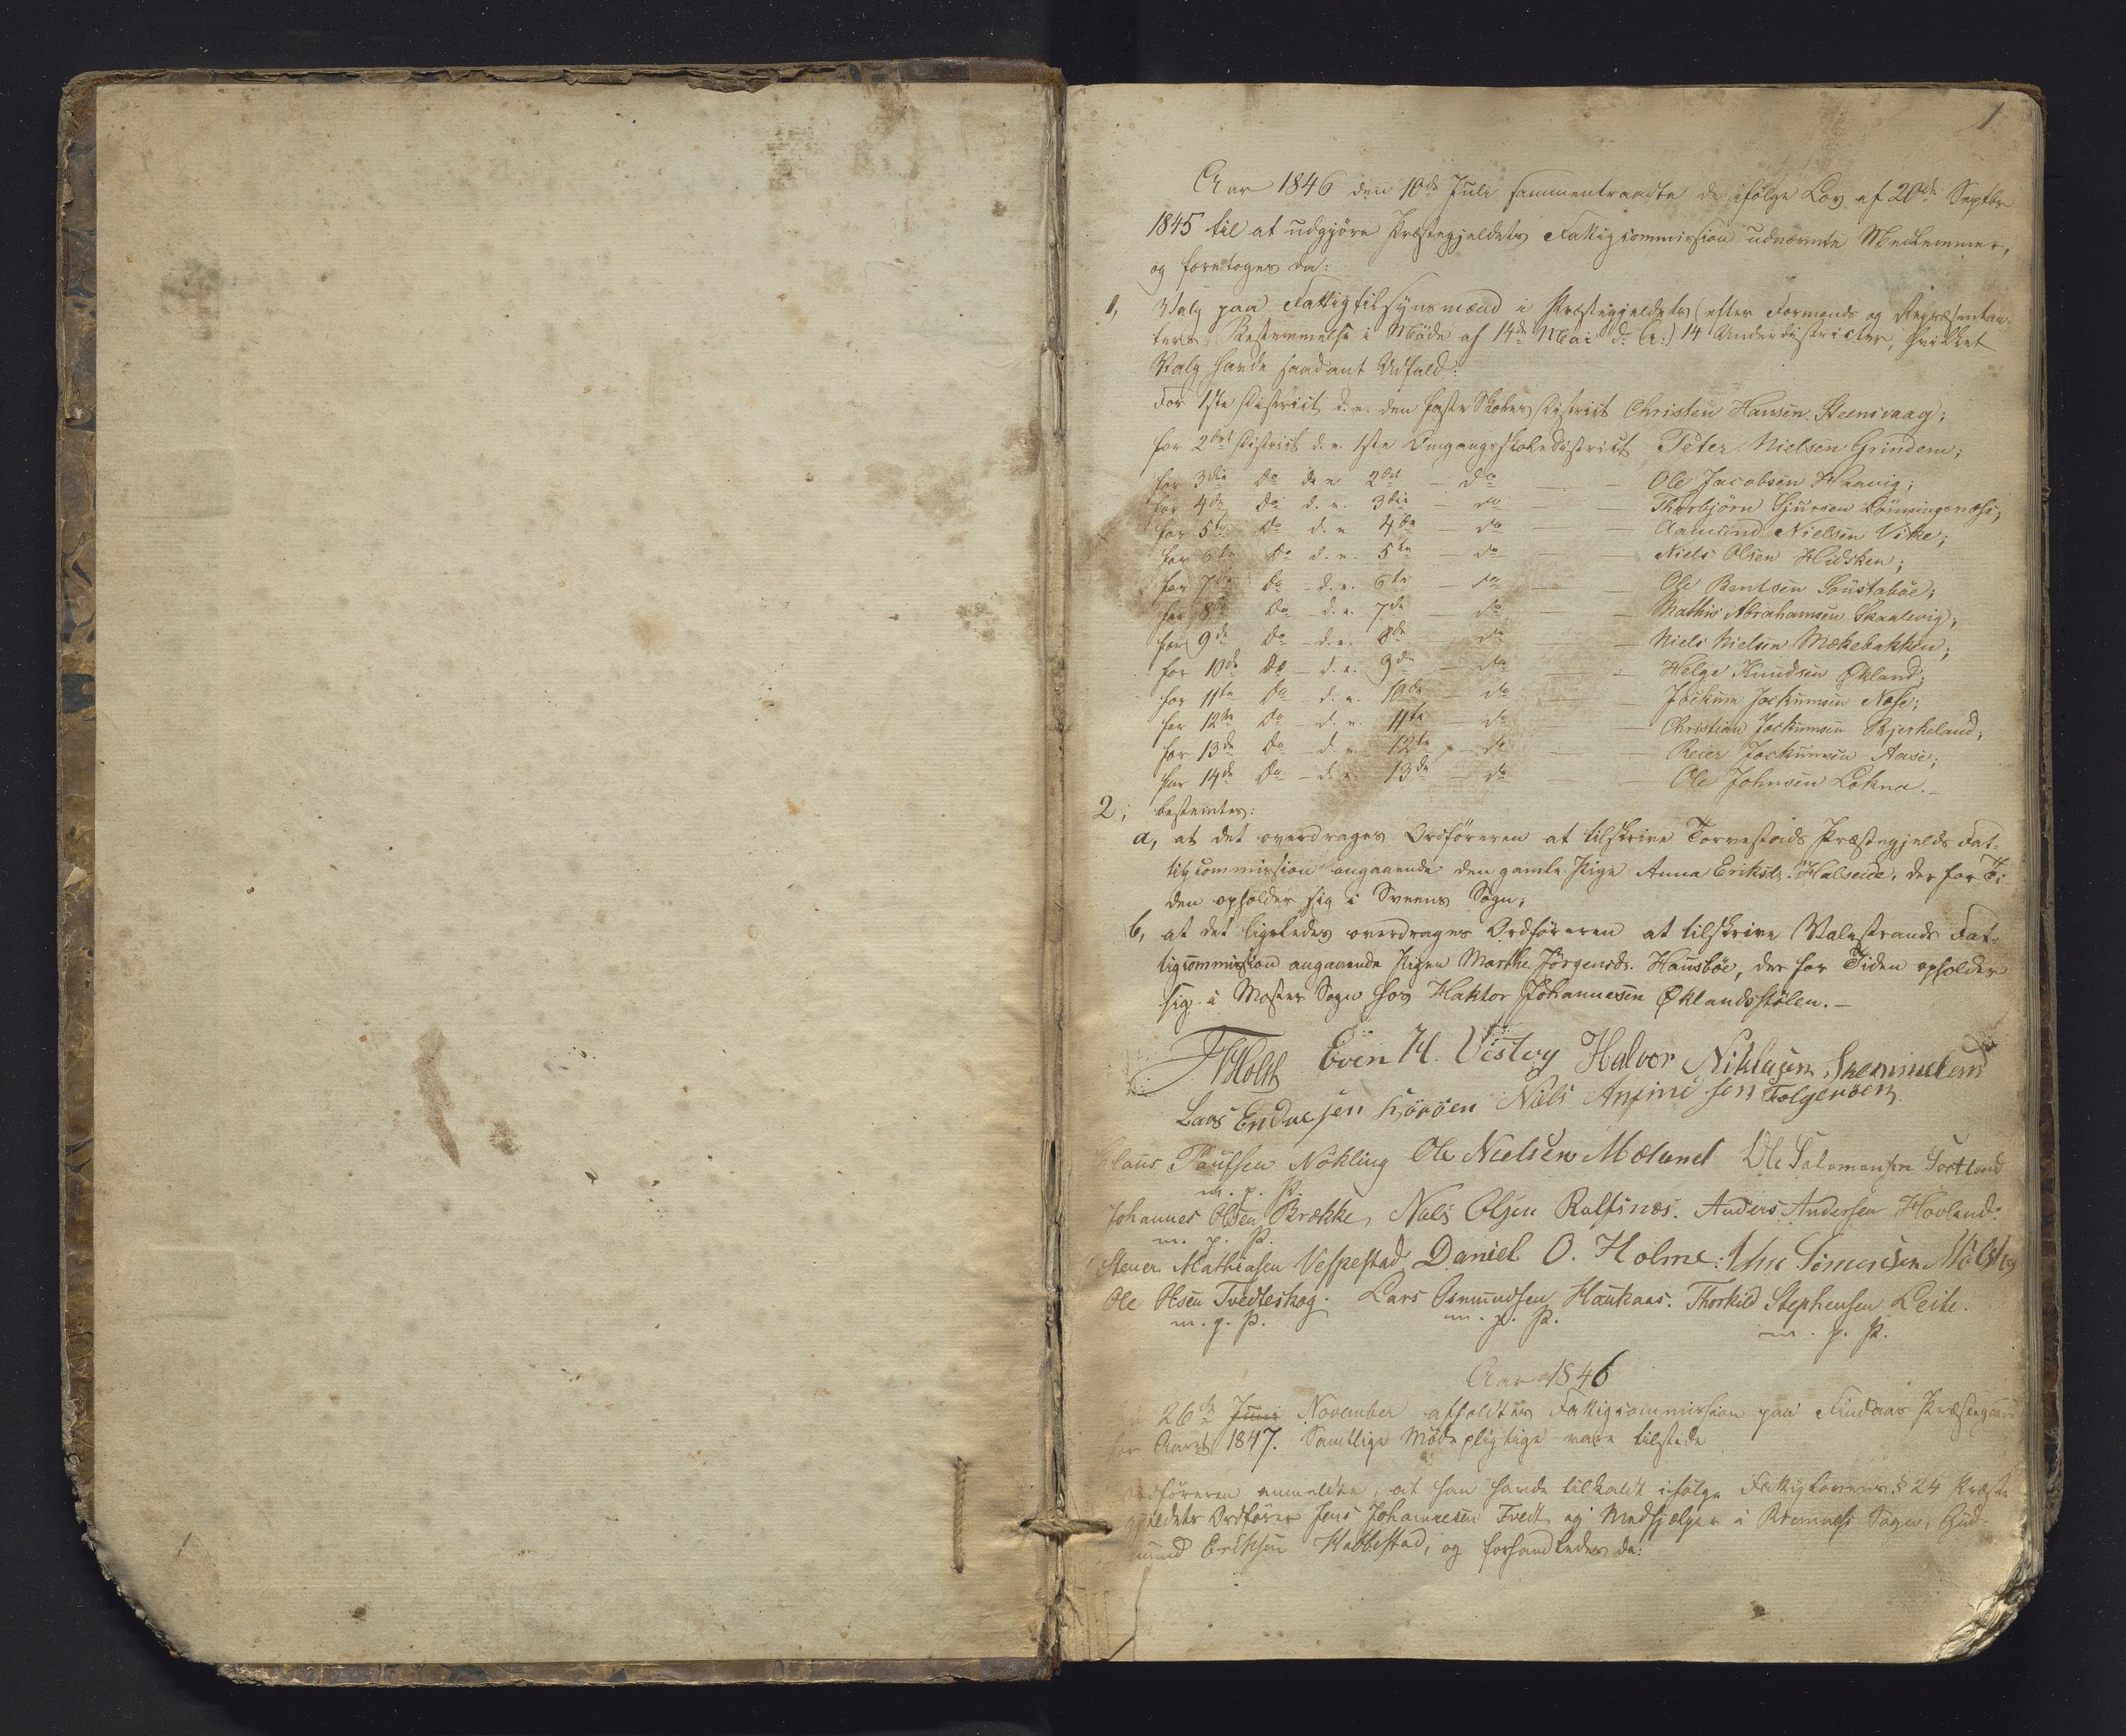 1
Aar 1846 den 10de Juli sammentraadte de ifølge Lov af 20de Septbr
1845 til at udgjöre Præstegjeldets Fattigcommission udnævnte Medlemmer,
og foretoges da:
1, Valg paa Fattigtilsynsmænd i Præstegjeldets (efter Formænds og Repræsentan-
ters Bestemmelse i Möde af 14de Mai d: A:) 14 Underdistricter, hvilket
Valg havde saadant Udfald:
For 1ste District d. e. den faste Skoles District Christen Hansen Steensvaag;
for 2det District d. e. 1ste Omgangsskoledistrict Peter Nielsen Grindem;
for 3die Do d. e. 2det - do - Ole Jacobsen Waavig;
for 4de Do d. e. 3die - do - Thorbjörn Sjursen Lönningsnæss;
for 5te Do d. e. 4de - do - Aamund Nielsen Vike;
for 6te Do d. e. 5te - do - Niels Olsen Hidsken;
for 7de Do - d. e. 6te - do - Ole Bentsen Goustaböe;
for 8de Do - d. e. 7de - do - Mathis Abrahamsen Skaalevig;
for 9de Do - d. e. 8de - do - Niels Nielsen Mækebakken;
for 10de Do - d. e. 9de - do - Helge Knudsen Økland;
for 11te Do d. e. 10de - do - Jockum Jockumsen Næse;
for 12te Do - d. e. 11te - do - Christian Jockumsen Bjerkeland;
for 13de Do - d. e. 12te - do - Reier Jockumsen Aase;
for 14de Do - d. e. 13de - do - Ole Johnsen Lokna.-
2; bestemtes:
a, at det overdrages Ordföreren at tilskrive Torvestads Præstegjelds Fat-
tigcommission angaaende den gamle Pige Anna Eriksdr. Halseide, der for Ti-
den opholder sig i Sveens Sogn;
b, at det ligeledes overdrages Ordföreren at tilskrive Valestrands Fat-
tigcommission angaaende Pigen Marthe Jörgensdr. Hausböe, der for Tiden opholder
sig i Mosters Sogn hos Haktor Johannesen Øklandsstölen.-
Holst Even H. Vestvy Halvor Niklasen Skemmeland
Lars Endresen Niels Anfindsen Folgeröen
Claus Paulsen Nökling Ole Nielsen Mæland Ole Salomonsen Tortland
m. p. P.
Johannes Olsen Brække, Niels Olsen Rolfsnæs. Anders Andersen Hovland.
m. p. P.
Stener Mathiasen Vespestad Daniel O. Holme. Simonsen
Ole Olsen Tvedteskog. Lars Osmundsen Haukaas. Thorkild Stephensen Leite.
m. p. P. m. p. P. m. p. P.
Aar 1846
26de Juni November afholdtes Fattigcommission paa Findaas Præstegaard
for Aaret 1847. Samtlige Mödepligtige vare tilstede
Ordföreren anmeldte, at han havde tilkaldt ifölge Fattiglovens § 24 Præste
gjeldets Ordförer Jens Johannesen Tvedt og Medhjelper i Bremnæs Sogn, Gud-
mund Eriksen Habbestad, og forhandledes da: